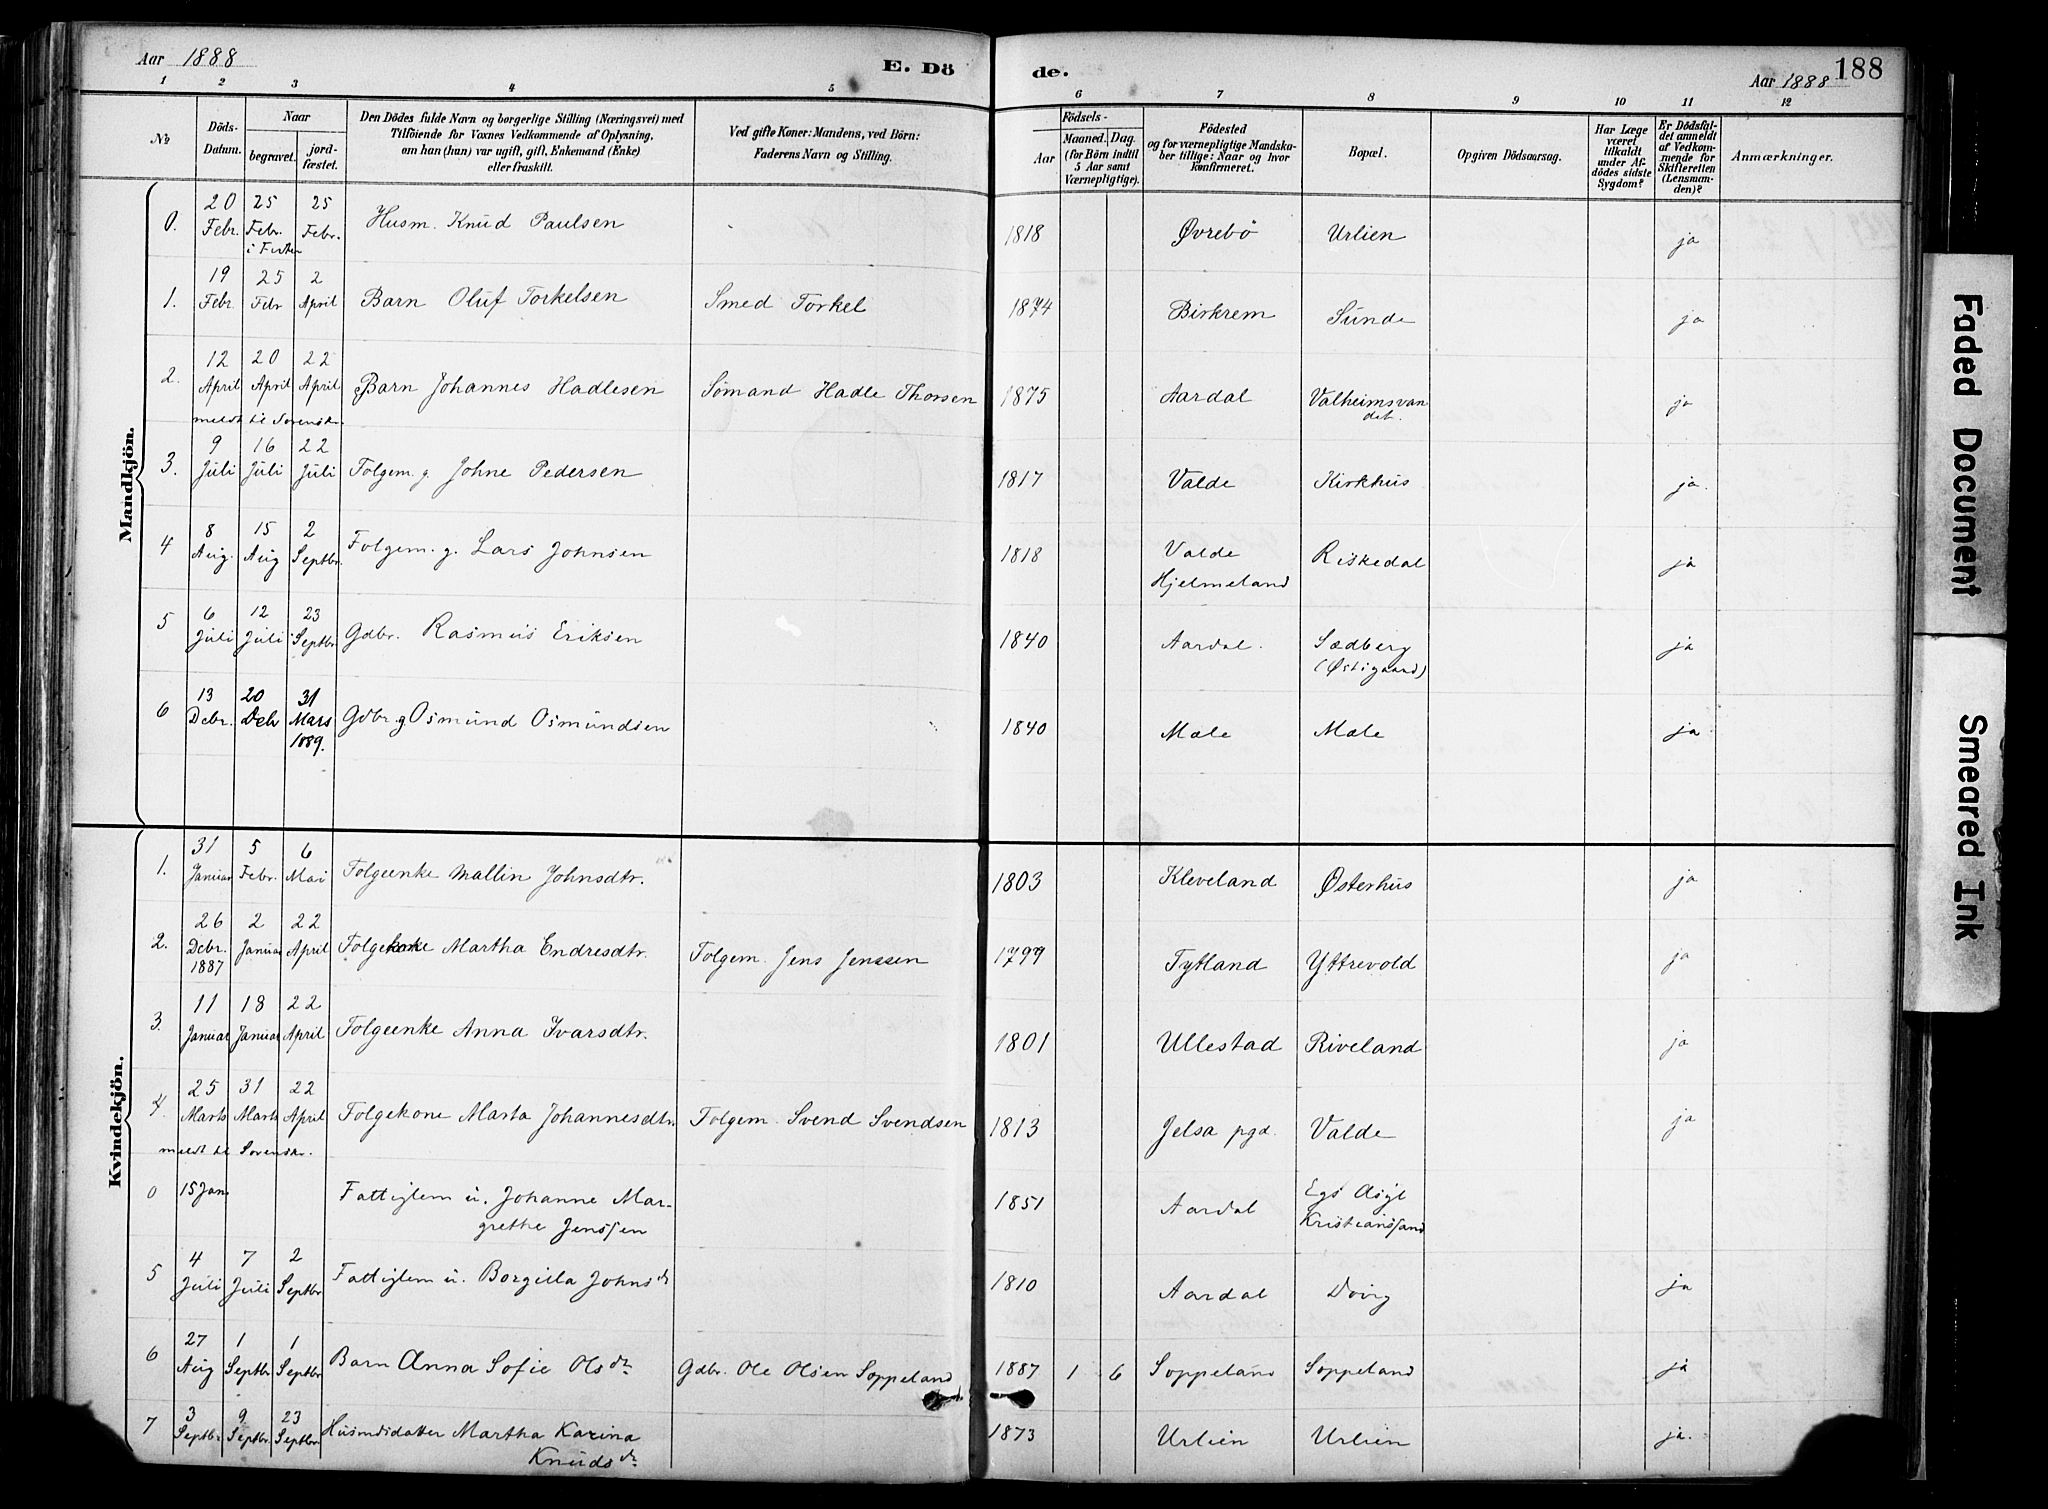 Aar 1888
E. Dö
de.
Aar 1888
188
1 2 3 4 5 6 7 8 9 10 11 12
№
Döds-
Datum.
Naar
begravet.
jord-
fæstet.
Den Dödes fulde Navn og borgerlige Stilling (Næringsvei) med
Tilföiende for Voxnes Vedkommende af Oplysning,
om han (hun) var ugift, gift, Enkemand (Enke)
eller fraskilt.
Ved gifte Koner: Mandens, ved Börn:
Faderens Navn og Stilling.
Födsels-
Aar
Maaned. Dag.
(for Börn indtil
5 Aar samt
Værnepligtige).
Födested
og for værnepligtige Mandska-
ber tillige: Naar og hvor
konfirmeret.
Bopæl.
Opgiven Dödsaarsag.
Har Læge
været
tilkaldt
under Af-
dödes sidste
Sygdom?
Er Dödsfal-
det anmeldt
af Vedkom-
mende for
Skifteretten
(Lensman-
den)?
Anmærkninger.
Mandkjön.
0. 20 Febr. 25 Febr. i Fister 25 Febr. Husm. Knud Paulsen 1818 Øvrebö Urlien ja
1. 19 Febr. 25 Febr 2 April Barn Oluf Torkelsen Smed Torkel 1874 Birkrem Sunde ja
2. 12 April 20 April 22 April Barn Johannes Hadlesen Sømand Hadle Thorsen 1875 Aardal Valheimsvandet. ja
meldt til Sorenskr.
3. 9 Juli 16 Juli 22 Juli Folgem. g. Johne Pedersen 1817 Valde Kirkhus ja.
4 8 Aug. 15 Aug 2 Septbr. Folgem. g. Lars Johnsen 1818 Valde Hjelmeland Riskedal ja
5 6 Juli 12 Juli 23 Septbr. Gdbr. Rasmus Eriksen 1840 Aardal. Sædberg (Østigaard) ja
6 13 Debr. 20 Debr 31 Mars 1889. Gdbr. g Osmund Osmundsen 1840 Mæle Mæle ja
Kvindekjön.
1. 31 Januar 5 Febr. 6 Mai Folgeenke Mallin Johnsdtr. 1803 Kleveland Østerhus ja
2. 26 Debr. 1887 2 Januar 22 April Folgekone Martha Endresdtr. Folgem. Jens Jenssen 1799 Tytland Yttrevold ja
3. 11 Januar 18 Januar 22 April Folgeenke Anna Ivarsdtr. 1801 Ullestad Riveland ja
4. 25 Marts 31 Marts 22 April Folgekone Marta Johannesdtr. Folgem. Svend Svendsen 1813 Jelsa pgd. Valde ja
meldt til Sorenskr.
0 15 Jan. Fattiglem u. Johanne Margrethe Jenssen 1851 Aardal Egs Asyl Kristianssand
5 4 Juli 7 Juli 2 Septbr Fattiglem u. Borgilla Johnsdr 1810 Aardal Døvig ja
6 27 Aug 1 Septbr. 1 Septbr. Barn Anna Sofie Olsdr Gdbr. Ole Olsen Soppeland 1887 1 6 Soppeland Soppeland ja
7 3 Septbr. 9 Septbr. 23 Septbr. Husmdsdatter Martha Karina Knudsdr 1873 Urlien Urlien ja.
Faded Document
Smeared Ink